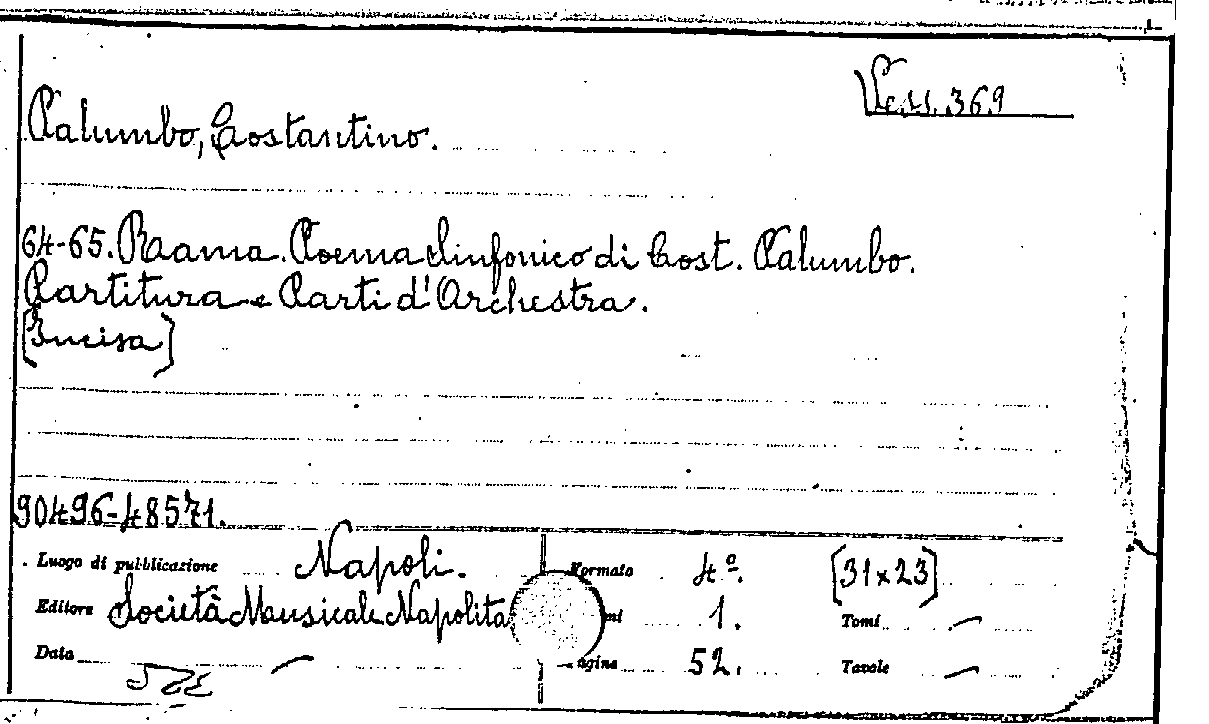 369
Palumbo, Costantino.
64-65. Raama. Poema Sinfonico di Cost. Palumbo.
Partitura e Parti d'Orchestra.
[Incisa]
90496-48571.
Luogo di pubblicazione Napoli. Formato 4º. [31x23]
Editore Società Musicale Napolita 1. Tomi —
Data — 52. Tavole —